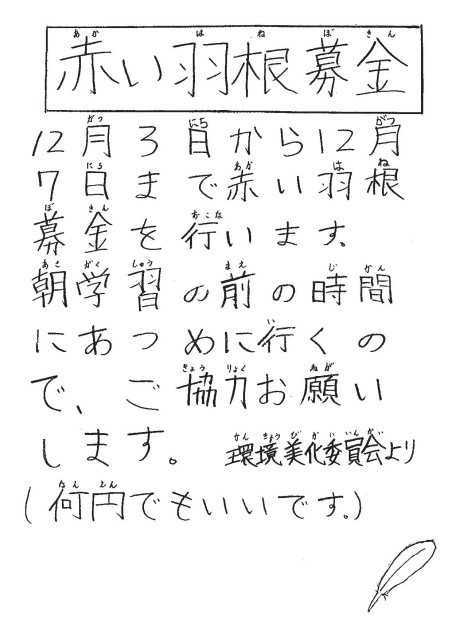 赤い羽根募金
12月3日から12月
7日まで赤い羽根
募金を行います。
朝学習の前の時間
にあつめに行くの
で、ご協力お願い
します。 環境美化委員会より
(何円でもいいです。)